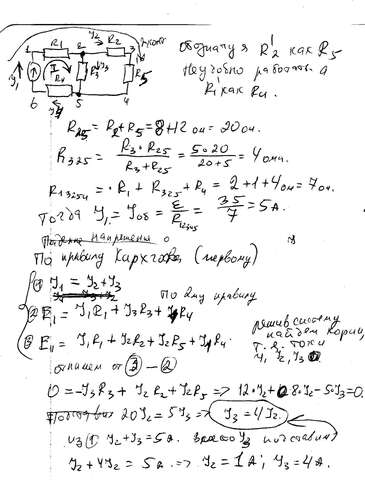 1 R₁ 2 I₂ R₂ 3
I₁ R₄ R₃ I₃ R₅
6 5 4
обозначу я R₂' как R₅
Неудобно работать а
R₁' как R₄.
R₂₅ = R₂ + R₅ = 8 + 12 ом = 20 ом.
R₃₂₅ = R₃ · R₂₅ / R₃ + R₂₅ = 5·20 / 20+5 = 4 ома.
R₁₃₂₅₄ = R₁ + R₃₂₅ + R₄ = 2+1+4 ом = 7 ом.
Тогда I₁ = I об = ε / R₁₂₃₄₅ = 35 / 7 = 5 А.
По правилу Кирхгофа (первому)
① I₁ = I₂ + I₃
По 2му правилу
② E₁ = I₁R₁ + I₃R₃ + I₁R₄
③ E₁₁ = I₁R₁ + I₂R₂ + I₂R₅ + I₁R₄.
решив систему
найдем корни,
т.е. токи
I₁ I₂, I₃
отнимем от ③ – ②
0 = -I₃R₃ + I₂R₂ + I₂R₅ => 12·I₂ + 8·I₂ - 5·I₃ = 0.
20I₂ = 5I₃ => I₃ = 4I₂.
из ① I₂ + I₃ = 5А. вместо I₃ подставим
I₂ + 4I₂ = 5А => I₂ = 1А; I₃ = 4А.